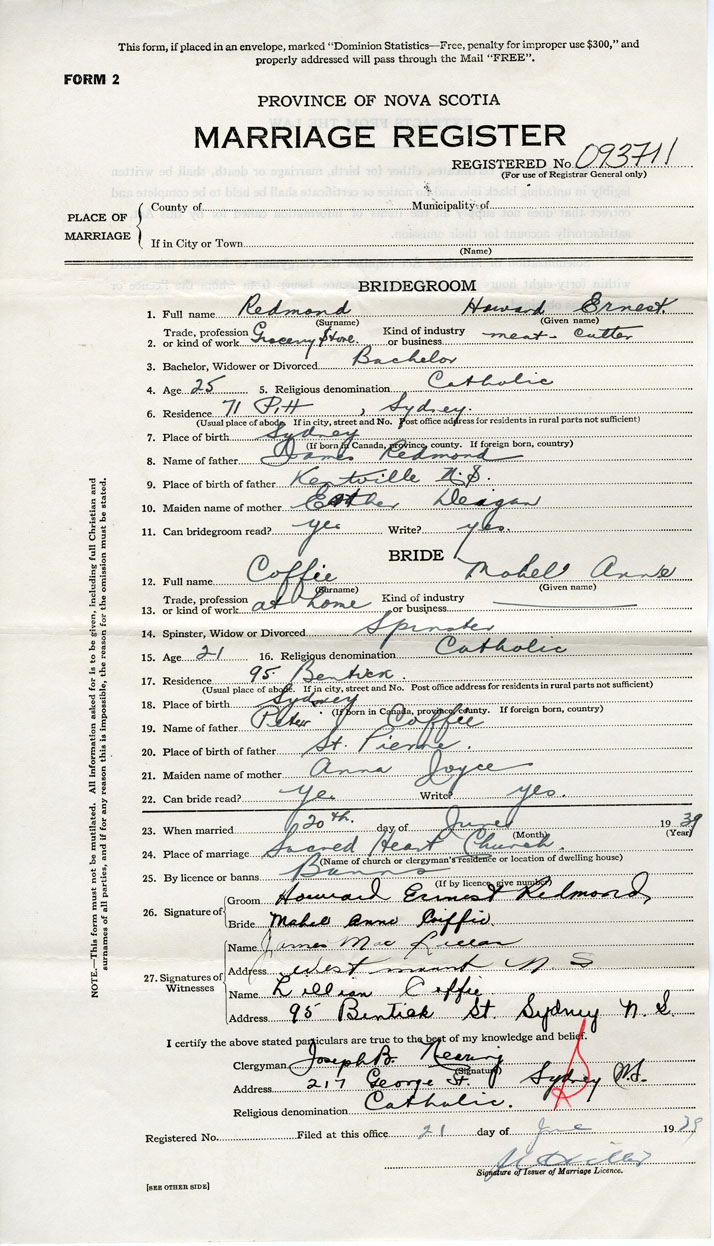 This form, if placed in an envelope, marked "Dominion Statistics—Free, penalty for improper use $300," and
properly addressed will pass through the Mail "FREE".
FORM 2
PROVINCE OF NOVA SCOTIA
MARRIAGE REGISTER
REGISTERED No. 093711
(For use of Registrar General only)
PLACE OF MARRIAGE
County of Municipality of
If in City or Town
(Name)
BRIDEGROOM
1. Full name Redmond Howard Ernest.
(Surname) (Given name)
2. Trade, profession or kind of work Grocery Store. Kind of industry or business meat-cutter
3. Bachelor, Widower or Divorced Bachelor
4. Age 25 5. Religious denomination Catholic
6. Residence 71 Pitt, Sydney.
(Usual place of abode. If in city, street and No. Post office address for residents in rural parts not sufficient)
7. Place of birth Sydney
(If born in Canada, province, county. If foreign born, country)
8. Name of father James Redmond
9. Place of birth of father Kentville N.S.
10. Maiden name of mother Esther Deagan
11. Can bridegroom read? yes Write? yes.
BRIDE
12. Full name Coffie Mabel Anne
(Surname) (Given name)
13. Trade, profession or kind of work at home Kind of industry or business
14. Spinster, Widow or Divorced Spinster
15. Age 21 16. Religious denomination Catholic
17. Residence 95 Bentick.
(Usual place of abode. If in city, street and No. Post office address for residents in rural parts not sufficient)
18. Place of birth Sydney
(If born in Canada, province, county. If foreign born, country)
19. Name of father Peter Coffie
20. Place of birth of father St. Pierre.
21. Maiden name of mother Anna Joyce
22. Can bride read? Yes Write? yes.
23. When married 20th. day of June 1939
(Month) (Year)
24. Place of marriage Sacred Heart Church.
(Name of church or clergyman's residence or location of dwelling house)
25. By licence or banns Banns
(If by licence, give number)
26. Signature of
Groom Howard Ernest Redmond
Bride Mabel Anne Coffie
27. Signatures of Witnesses
Name James Mac
Address West mount N S
Name Lillian Coffie
Address 95 Bentick St. Sydney N.S.
I certify the above stated particulars are true to the best of my knowledge and belief.
Clergyman Joseph B. Nearing
(Signature)
Address 217 George St. Sydney N.S.
Religious denomination Catholic.
Registered No. Filed at this office 21 day of June 1939
Signature of Issuer of Marriage Licence.
[SEE OTHER SIDE]
NOTE.—This form must not be mutilated. All information asked for is to be given, including full Christian and
surnames of all parties, and if for any reason this is impossible, the reason for the omission must be stated.